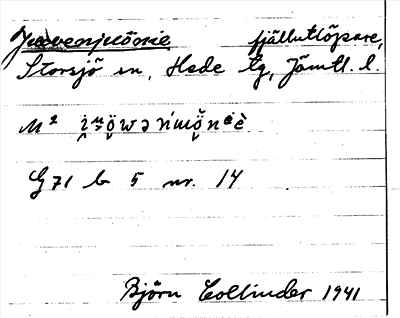 fjällutlöpare,
Storsjö sn, Hede tg, Jämtl. l.
M²
G 71 b 5 nr. 14
Björn Collinder 1941